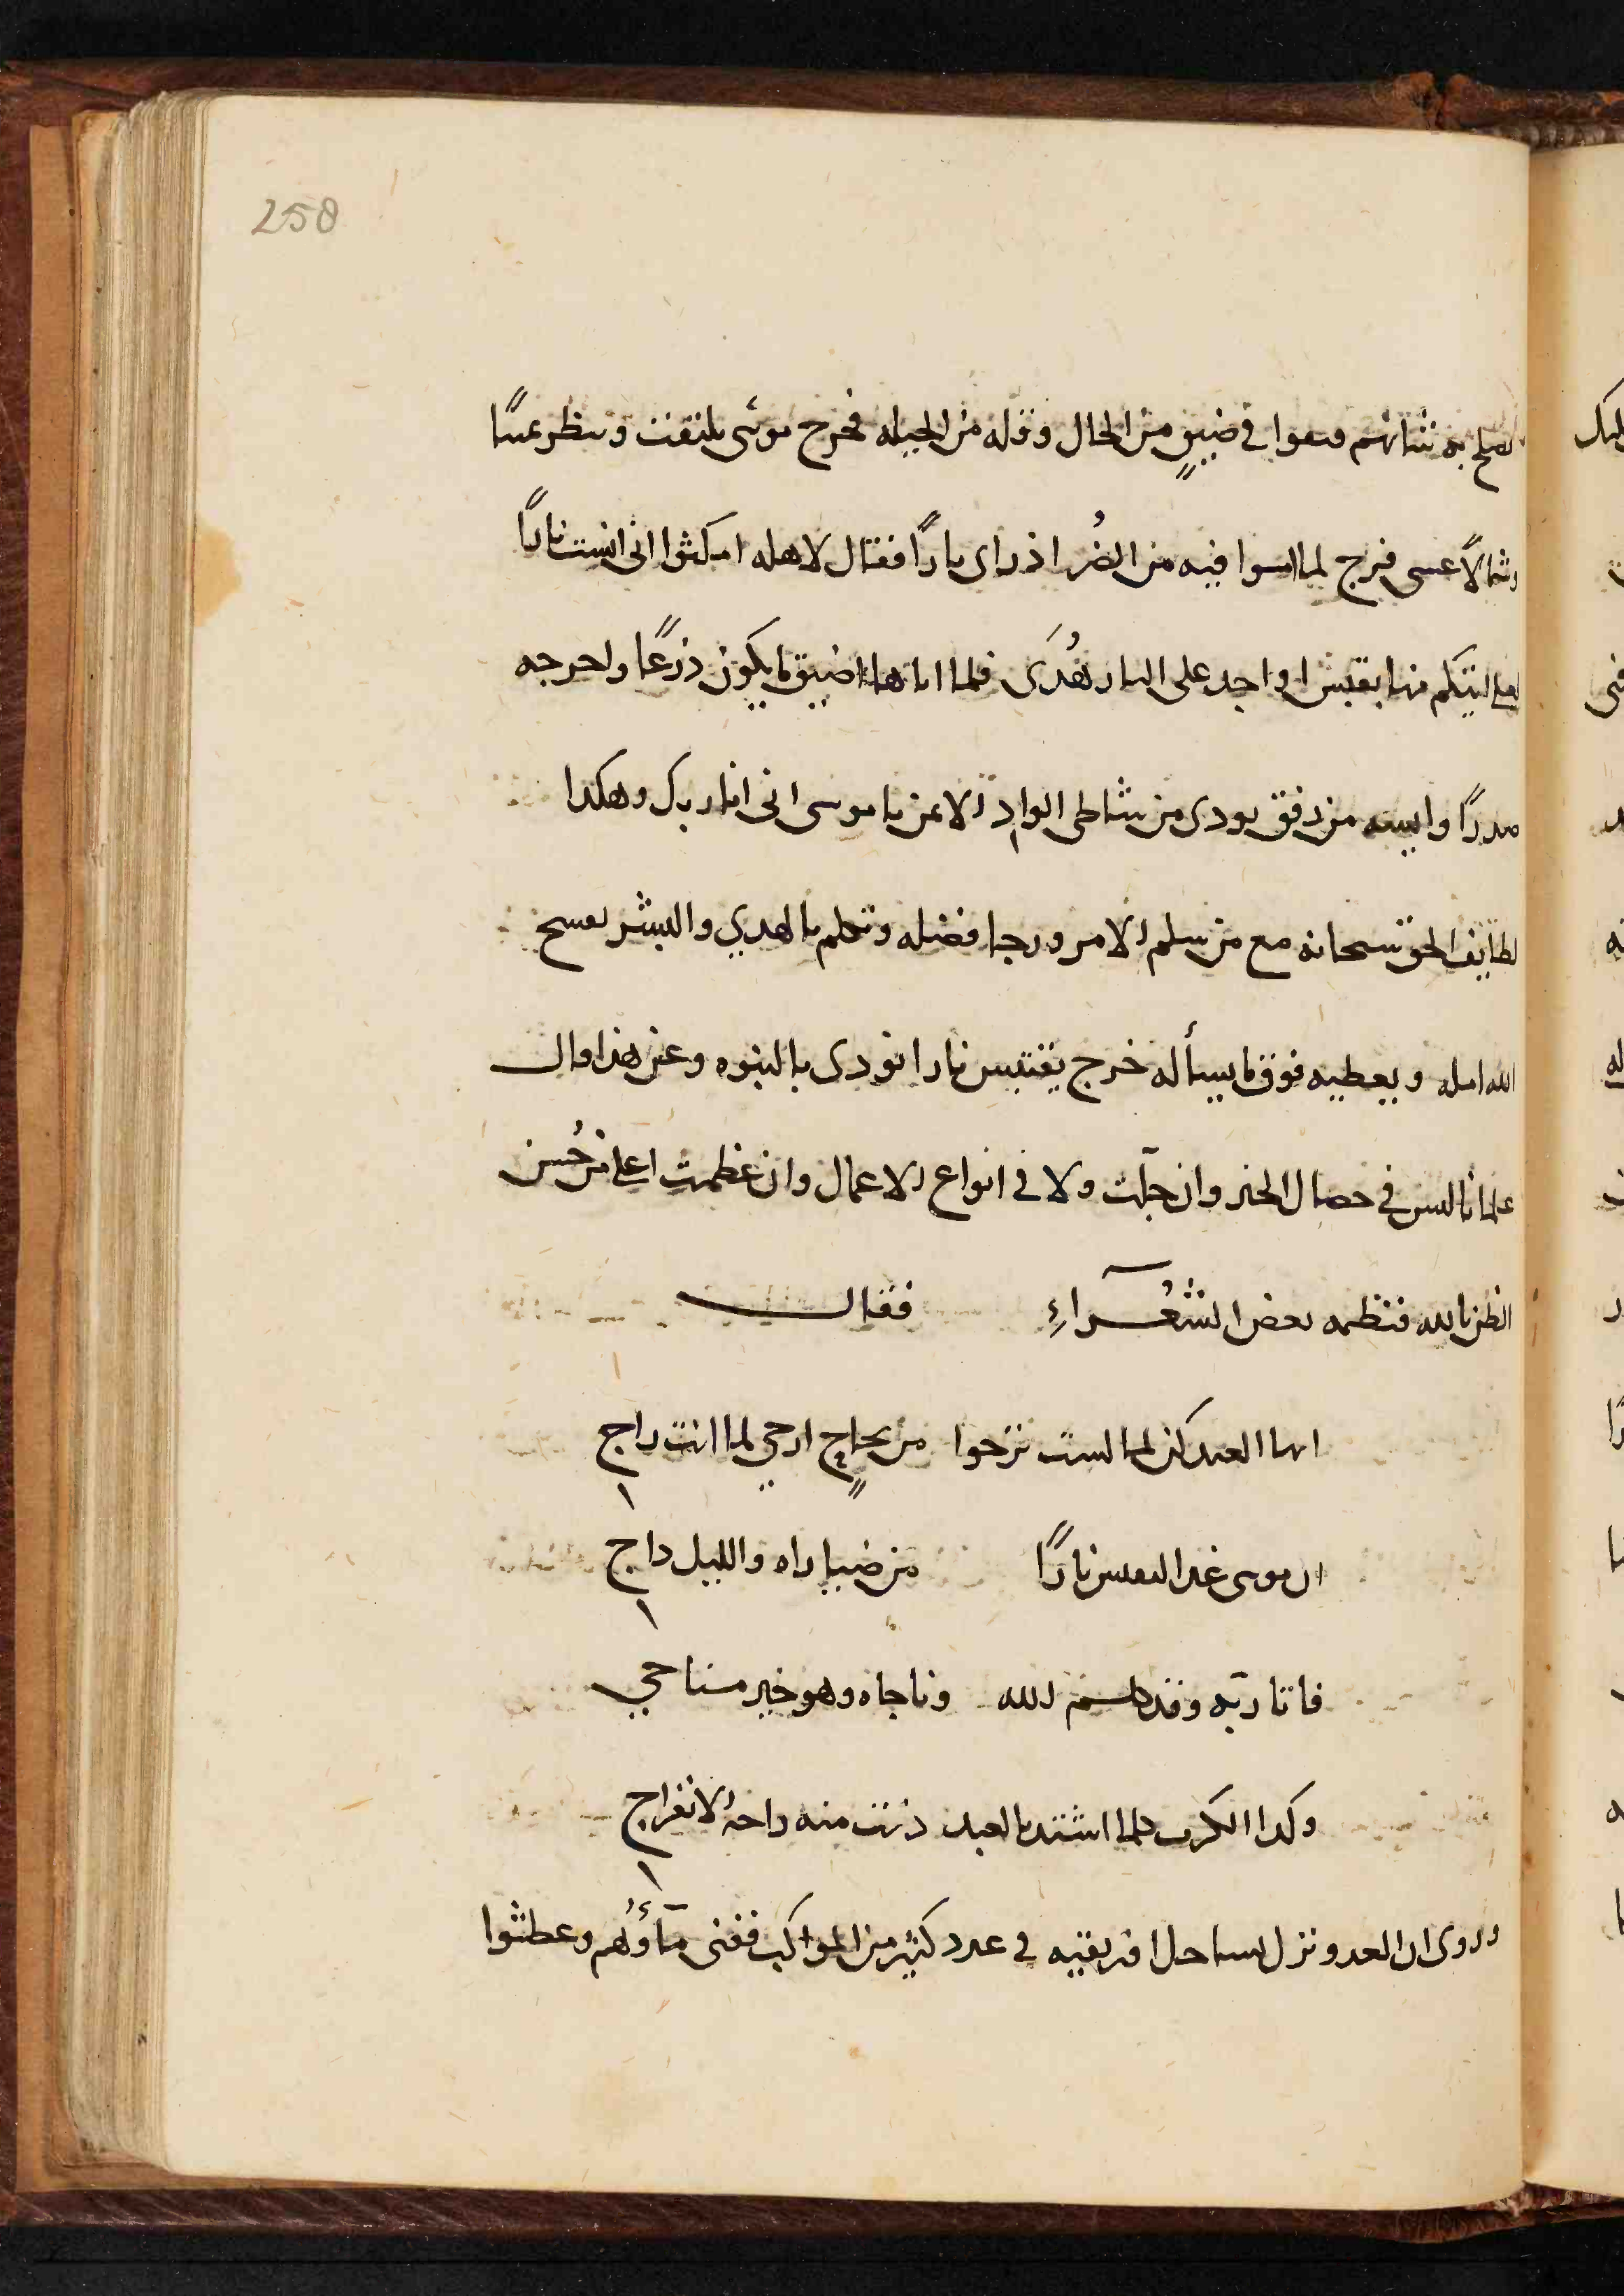 258
يصلح به شانهم فبقوا في ضيقٍ من الحال وقله من الحيله فخرج موسى يلتفت وينظر يمينًا
وشمالًا عسى فرج لما امسوا فيه من الضُر اذ راى نارًا فقال لاهله امكثوا انى انست نارًا
لعلى اتيكم منها بقبس او اجد على النار هُدَى فلما اتاها اضيق ما يكون ذرعًا واحرجه
صدرًا وايسه من رفق نودى من شاطى الواد الايمن يا موسى انى انا ربك وهكذا
لطايف الحق سبحانه مع من سلم الامر ورجا فضله وتكلم بالهدي والبشر يفسح
الله امله ويعطيه فوق ما يسأله خرج يقتبس نارا نودى بالنبوه وعن هذا قال
علماؤنا ليس في خصال الخير وان جلّت ولا في انواع الاعمال وان عظمت اعلى من حُسن
الظن بالله فنظمه بعض الشعُرآءِ فقال
ايها العبد كن لما لست ترجوا من نجاحٍ ارجي لما انت راج
ان موسى غدا ليقبس نارًا من ضيا راه والليل داج
فاتا ربّه وقد كلم الله وناجاه وهو خير مناجي
وكذا الكرب كلما اشتد بالعبد دنت منه راحة الانفراج
وروى ان العدو نزل بساحل افريقيه في عدد كثير من المراكب ففنى مآؤُهم وعطشوا